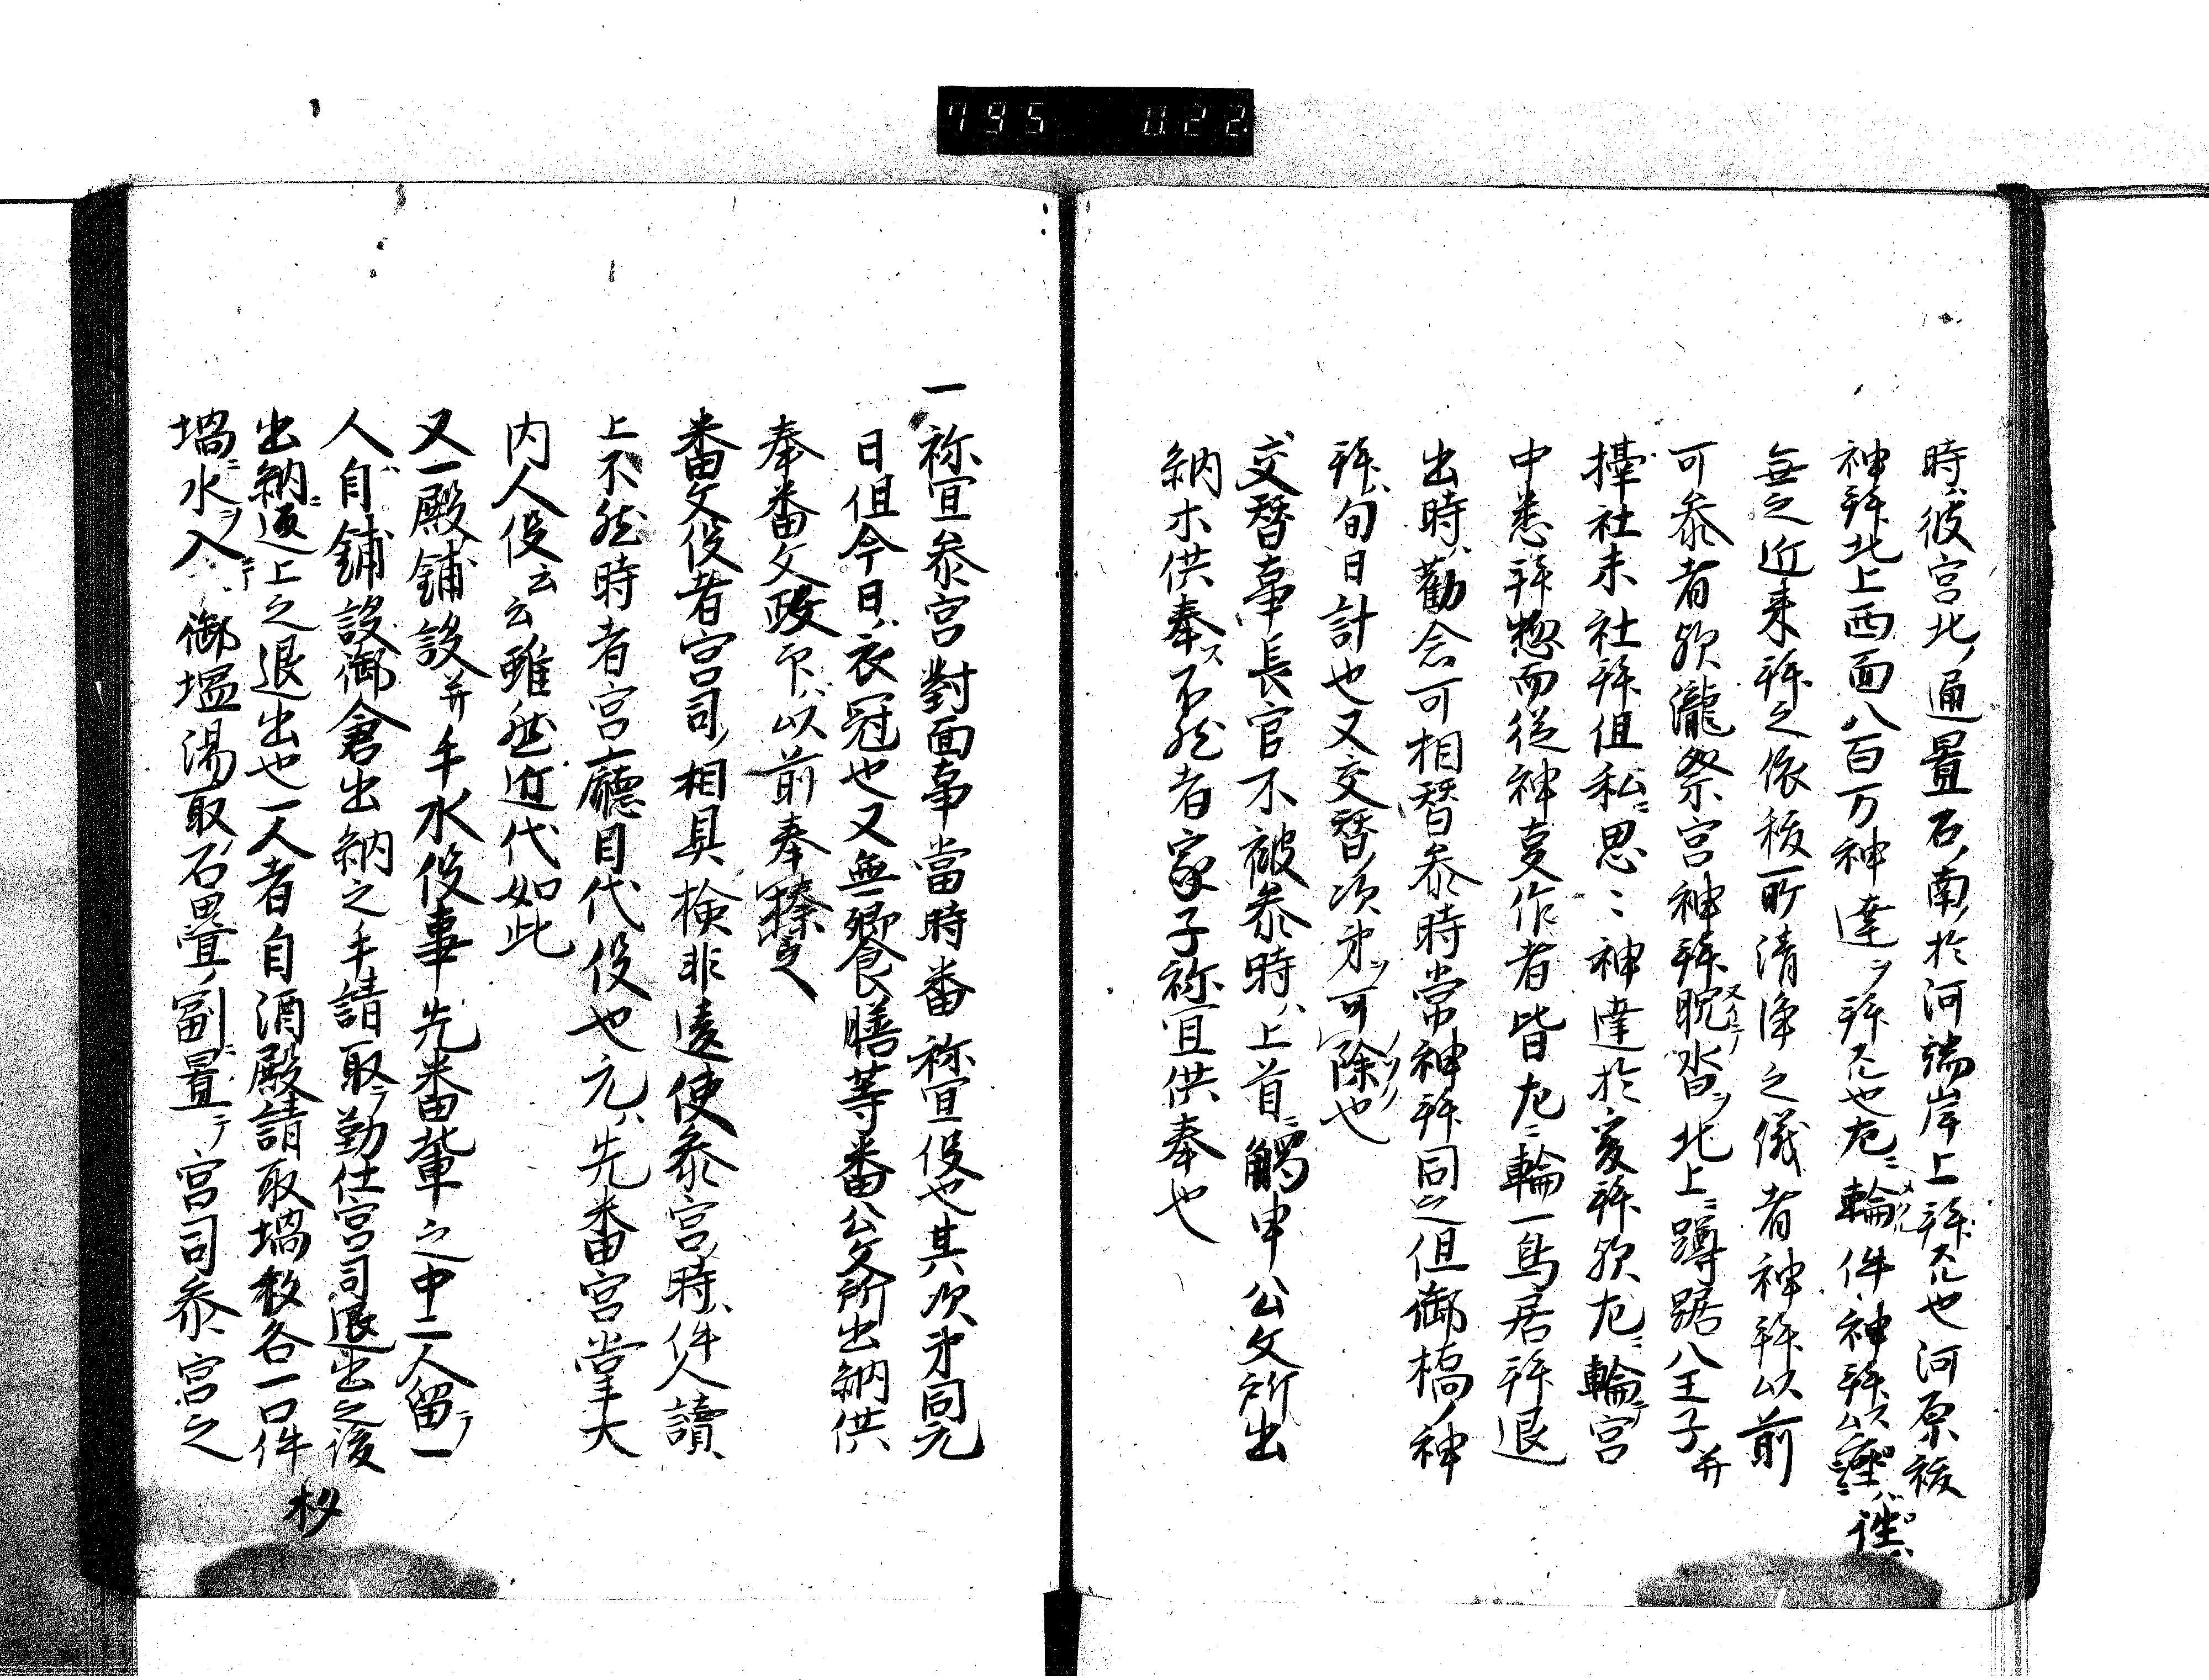 795 022
時、彼宮北ノ通置石ノ南ノ於河端岸上拜在也河原祓
神拜北上西面八百万神達ヲ拜在也左ニ輪件神拜以
無之近来拜之依祓所清浄之儀者神拜以前
可参者歟瀧祭宮神拜脱沓ヲ北上ニ蹲踞八王子并
攝社末社拜但私ニ思ニ神達於爰拜歟左ニ輪テ宮
中悉拜惣而従神事作者皆左ニ輪一鳥居拜退
出時、勸念可相替参時常神拜同之但御橋ノ神
拜、旬日計也又交替ノ次第ヲ可除也
交替事長官不被参時、上首ニ觸申公文所出
納ホ供奉ス不然者家子祢宜供奉也
一祢宜参宮對面事當時番祢宜役也其次第同元
日但今日、衣冠也又無饗膳等番公文所出納供
奉番文政印ハ以前奉
番文役者宮司ノ相具檢非違使参宮ノ時、件人讀
上不然時者宮廳目代役也元、先番宮掌大
内人役云云雖然近代如此
又一殿鋪設并手水役事先番輩之中二人留テ一
人、自鋪設御倉出納之手請取テ勤仕宮司退出之後
出納ニ返上之退出也一人者自酒殿請取堝杓各一口件
堝ニ水ヲ入テ御塩湯取ノ石畳ノ副ニ置テ宮司参宮之
杓